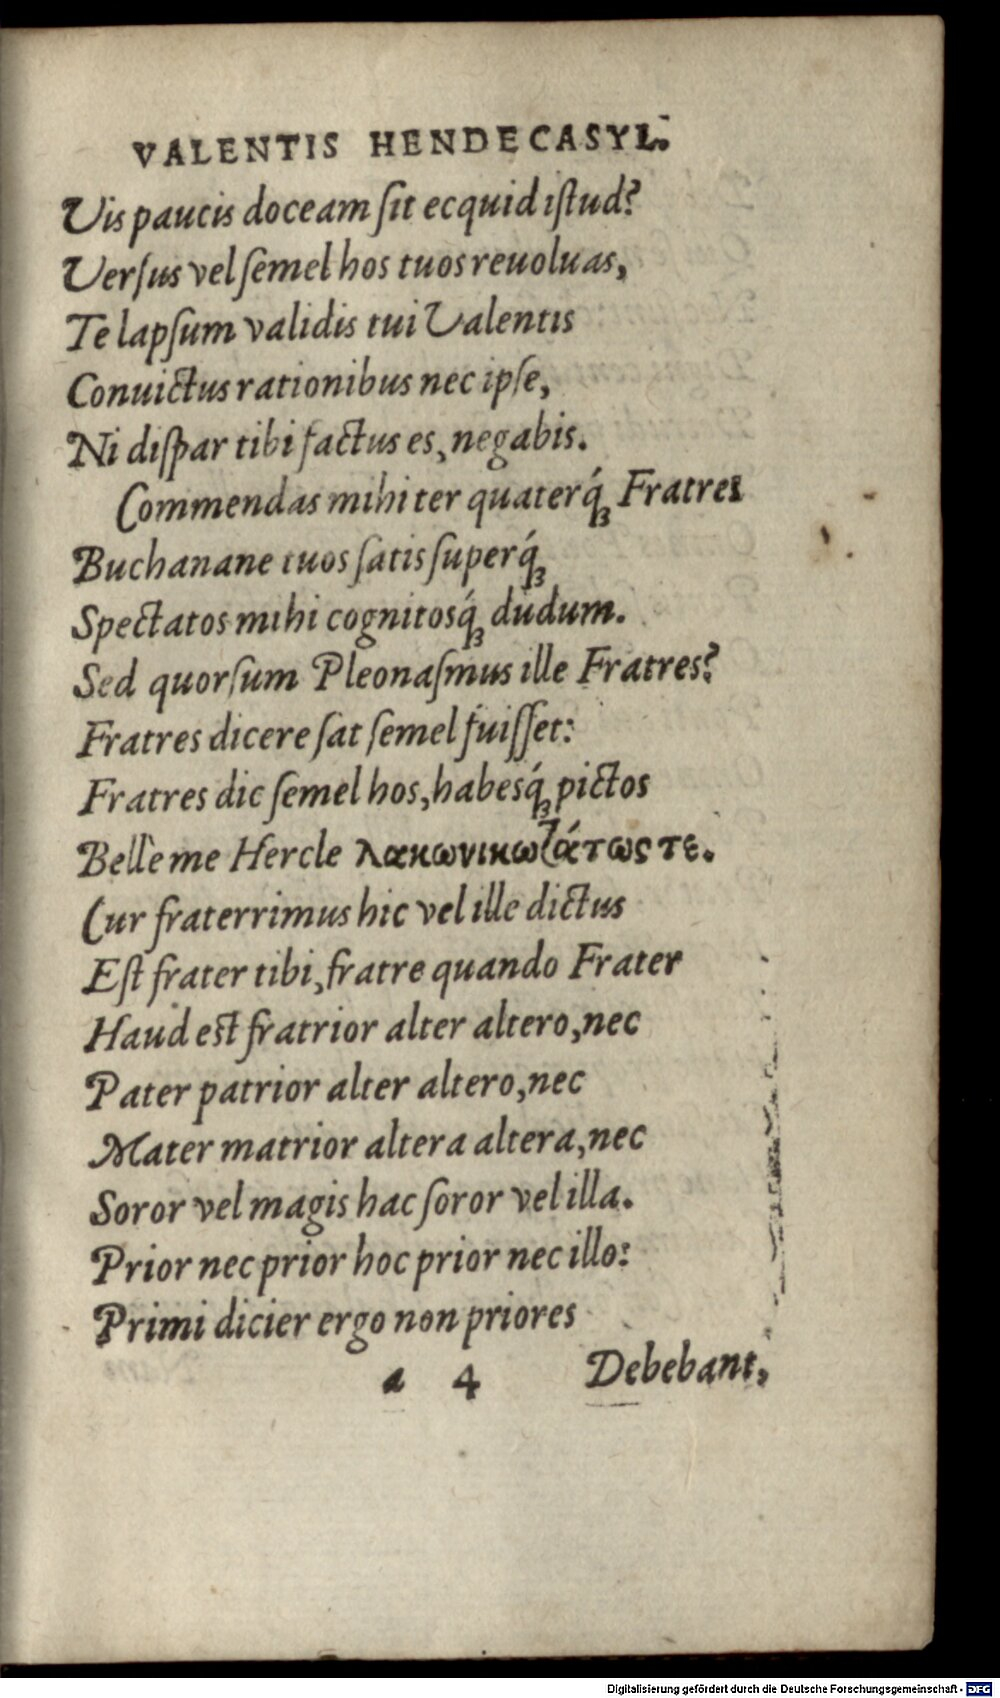 VALENTIS HENDECASYL.
Uis paucis doceam ſit ecquid iſtud?
Uerſus vel ſemel hos tuos reuoluas,
Te lapſum validis tui Ualentis
Conuictus rationibus nec ipſe,
Ni diſpar tibi factus es, negabis.
Commendas mihi ter quaterq́ꝫ Fratres
Buchanane tuos ſatis ſuperq́ꝫ
Spectatos mihi cognitosq́ꝫ dudum.
Sed quorſum Pleonaſmus ille Fratres?
Fratres dicere ſat ſemel fuiſſet:
Fratres dic ſemel hos, habesq́ꝫ pictos
Belle me Hercle λακωνικωτάτως τε.
Cur fraterrimus hic vel ille dictus
Eſt frater tibi, fratre quando Frater
Haud est fratrior alter altero, nec
Pater patrior alter altero, nec
Mater matrior altera altera, nec
Soror vel magis hac ſoror vel illa.
Prior nec prior hoc prior nec illo:
Primi dicier ergo non priores
a 4 Debebant,
Digitalisierung gefördert durch die Deutsche Forschungsgemeinschaft - DFG